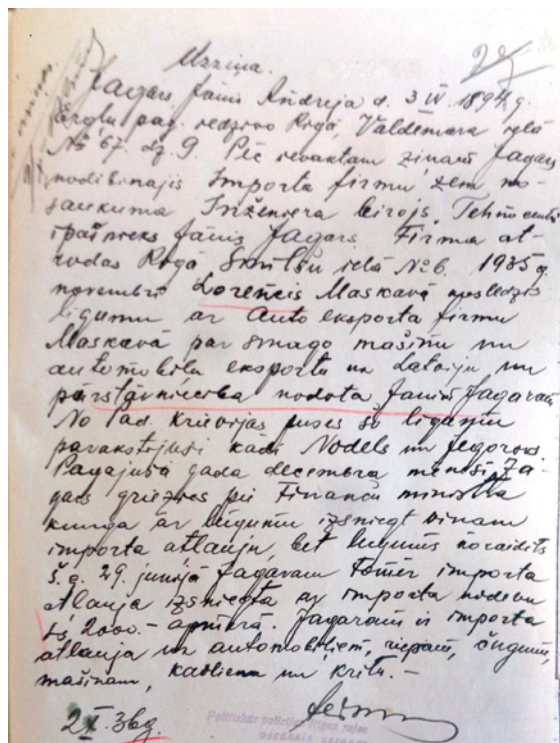 Uzziņa.
Jagars Jānis Andreja d. 3 IV 1894 g.
Ērgļu pag. redzivo Rigā, Valdemara ielā
№ 67. dz. 9. Pēc ievāktam ziņam Jagars
nodibinajis Importa firmu zem no-
saukuma Inženiera birojs
ipašnieks Jānis Jagars. Firma at-
rodas Rigā Smilšu ielā № 6. 1935 g.
novembrī Lorencis Maskavā noslēdzis
ligumu ar Auto eksporta firmu
Maskavā par smago mašinu un
automobiļu eksportu uz Latviju un
pārstāvniecība nodota Jānim Jagaram
No Pad. Krievijas puses šo ligumu
parakstijuši kādi Nodels un Jegorovs.
Pagajušā gada decembra mēnesī Ja-
gars griezies pie Finanču ministra
kunga ar lūgumu izsniegt viņam
importa atļauju, bet lugums noraidits
š. g. 29. junijā Jagaram tomēr importa
atļauja izsniegta ar importa nodevu
Ls 2000.- apmērā. Jagaram ir importa
atļauja uz automobiļiem, riepam, čugunu,
mašinam, kaoliena un kritu. -
2 X. 36 g.
Politiskās policijas Rīgas rajona